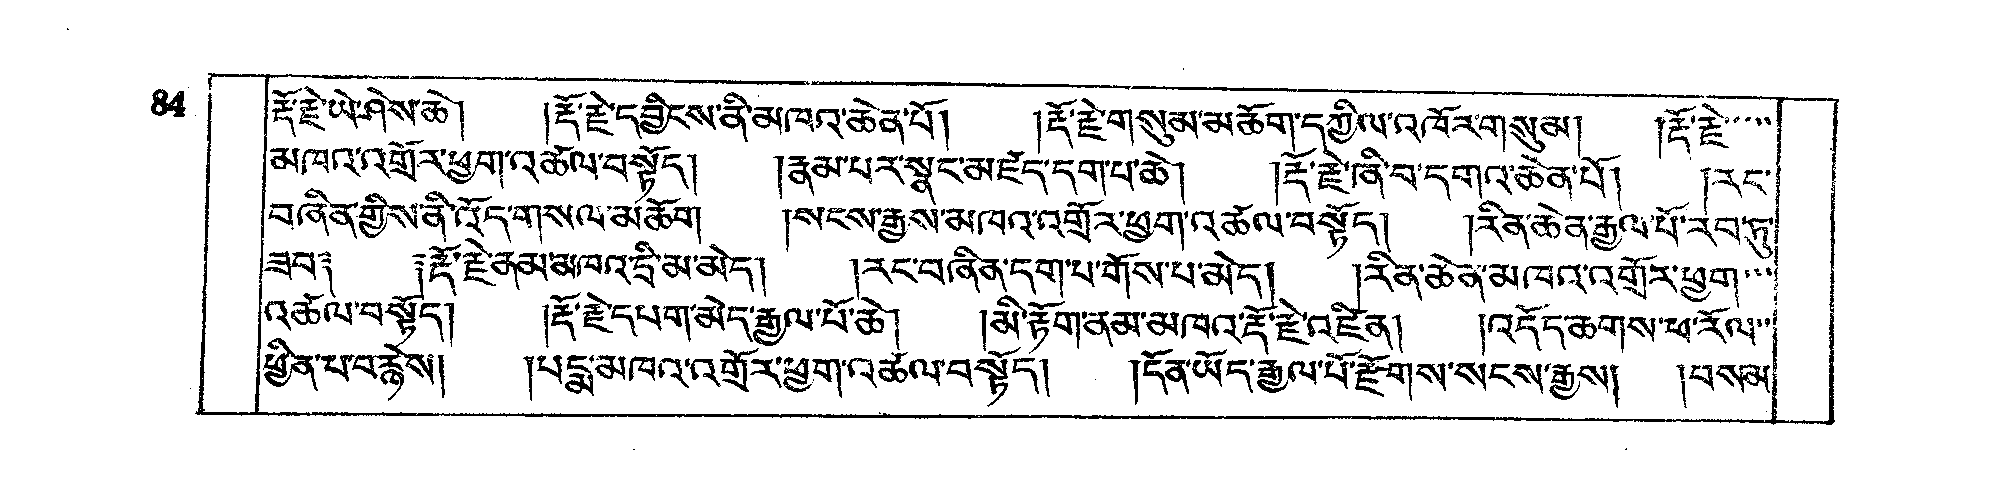 84
རྡོ་རྗེ་ཡེ་ཤེས་ཆེ། །རྡོ་རྗེ་དབྱིངས་ནི་མཁའ་ཆེན་པོ། །རྡོ་རྗེ་གསུམ་མཆོག་དཀྱིལ་འཁོར་གསུམ། །རྡོ་རྗེ་
མཁའ་འགྲོར་ཕྱག་འཚལ་བསྟོད། །རྣམ་པར་སྣང་མཛད་དག་པ་ཆེ། །རྡོ་རྗེ་ཞི་བ་དགའ་ཆེན་པོ། །རང་
བཞིན་གྱིས་ནི་འོད་གསལ་མཆོག །སངས་རྒྱས་མཁའ་འགྲོར་ཕྱག་འཚལ་བསྟོད། །རིན་ཆེན་རྒྱལ་པོ་རབ་ཏུ་
ཟབ༔ ༔རྡོ་རྗེ་ནམ་མཁའ་དྲི་མ་མེད། །རང་བཞིན་དག་པ་གོས་པ་མེད། །རིན་ཆེན་མཁའ་འགྲོར་ཕྱག་
འཚལ་བསྟོད། །རྡོ་རྗེ་དཔག་མེད་རྒྱལ་པོ་ཆེ། །མི་རྟོག་ནམ་མཁའ་རྡོ་རྗེ་འཛིན། །འདོད་ཆགས་ཕ་རོལ་
ཕྱིན་པ་བརྙེས། །པདྨ་མཁའ་འགྲོར་ཕྱག་འཚལ་བསྟོད། །དོན་ཡོད་རྒྱལ་པོ་རྫོགས་སངས་རྒྱས། །བསམ